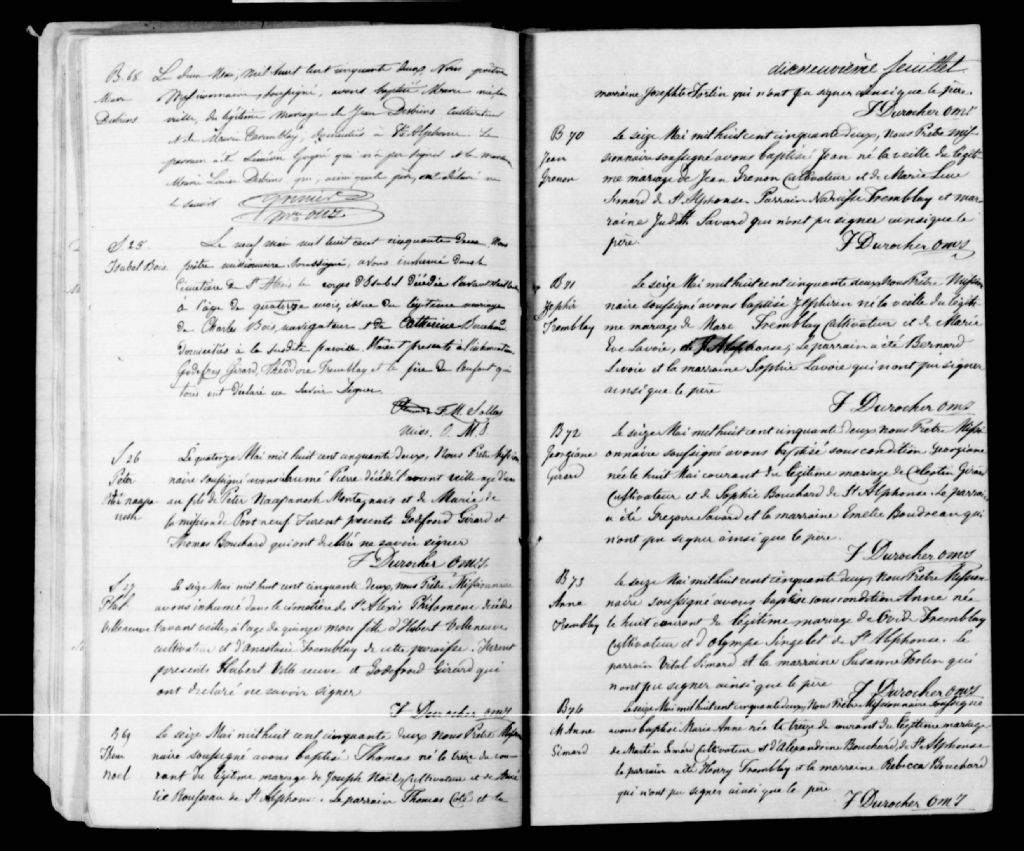 B. 68
Marie
Desbiens
Le deux Mai, mil huit cent cinquante deux, Nous prêtre
Missionnaire, soussigné, avons baptisé Marie née la
veille, du légitime mariage de Jean Desbiens cultivateur
et de Marie Tremblay, domiciliés à St Alphonse. Le
parrain a été Simeon Gagné qui n'a pu signer et la marraine
Marie Louise Desbiens qui, ainsi que le père, ont déclaré ne
le savoir
S. 25
Isabel Bois
Le neuf mai mil huit cent cinquante deux, Nous
prêtre missionnaire soussigné, avons inhumé dans le
Cimetière de St Alexis le corps d'Isabel décédée l'avant veille
à l'âge de quatorze mois, issue du légitime mariage
de Charles Bois, navigateur et de Catherine Bouchard
domiciliés à la susdite paroisse. Etaient présents à l'inhumation
Godefroy Girard, Théodore Tremblay et le père de l'enfant qui
tous ont déclaré ne savoir signer.
F. M. Sallas
miss. O. M. I
S. 26
Peter
naaspa
nesh
Le quatorze Mai mil huit cent cinquante deux, Nous Prêtre Mission
naire soussigné avons inhumé Pierre décédé l'avant veille agé d'un
an fils de Peter Naaspanesh Montagnais et de Marie de
la mission de Port neuf. Furent presents Godfroid Girard et
Thomas Bouchard qui ont déclaré ne savoir signer
F Durocher o m i
S. 27
Phil.
Villeneuve
Le seize Mai mil huit cent cinquante deux, nous Prêtre Missionnaire
avons inhumé dans le cimetière de St Alexis Philomene décédée
l'avant veille, à l'age de quinze mois fille d'Hubert Villeneuve
cultivateur et d'Anastasie Tremblay de cette paroisse. Furent
presents Hubert Ville neuve et Godefroid Girard qui
ont declaré ne savoir signer
F Durocher omi
B 69
Thom
Noel
Le seize Mai mil huit cent cinquante deux Nous Prêtre Mission
naire soussigné avons baptisé Thomas né le treize du cou-
rant du légitime mariage de Joseph Noel, Cultivateur et de
Rousseau de St Alphonse. Le parrain Thomas Coté et la
dixneuvième feuillet
marraine Josephte Fortin qui n'ont pu signer ainsi que le père.
F Durocher omi
B 70
Jean
Grenon
Le seize Mai mil huit cent cinquante deux, Nous Prêtre Mis-
sionnaire soussigné avons baptisé Jean né la veille du légiti-
me mariage de Jean Grenon Cultivateur et de Marie Luce
Simard de St Alphonse. Parrain Narcisse Tremblay et mar-
raine Judith Savard qui n'ont pu signer ainsi que le
père.
F Durocher omi
B 71
Zephir
Tremblay
Le seize Mai mil huit cent cinquante deux Nous Prêtre Mission
naire soussigné avons baptisé Zephirin né la veille du légiti-
me mariage de Marc Tremblay Cultivateur et de Marie
Eve Lavoie, de St Alphonse; Le parrain a été Bernard
Lavoie et la marraine Sophie Lavoie qui n'ont pu signer
ainsi que le père
F Durocher omi
B 72
Georgiane
Girard
Le seize Mai mil huit cent cinquante deux Nous Prêtre Missi-
onnaire soussigné avons baptisée sous condition Georgianne
née le huit Mai courant du légitime mariage de Celestin Girard
Cultivateur et de Sophie Bouchard de St Alphonse. Le parrain
a été Gregoire Savard et la marraine Emelie Boudreau qui
n'ont pu signer ainsi que le père.
F Durocher omi
B 73
Anne
Tremblay
Le seize Mai mil huit cent cinquante deux, Nous Prêtre Mission
naire soussigné avons baptisé sous condition Anne née
le huit courant du légitime mariage de Ovid Tremblay
Cultivateur et d'Olympe Singelet de St Alphonse. Le
parrain Vital Simard et la marraine Susanne Fortin qui
n'ont pu signer ainsi que le père
F Durocher omi
B 74
M Anne
Simard
Le seize Mai mil huit cent cinquante deux, Nous Prêtre Missionnaire soussigné
avons baptisé Marie Anne née le treize du courant du légitime mariage
de Martin Simard Cultivateur et d'Alexandrine Bouchard de St Alphonse
le parrain a été Henry Tremblay et la marraine Rebecca Bouchard
qui n'ont pu signer ainsi que le père
F Durocher omi